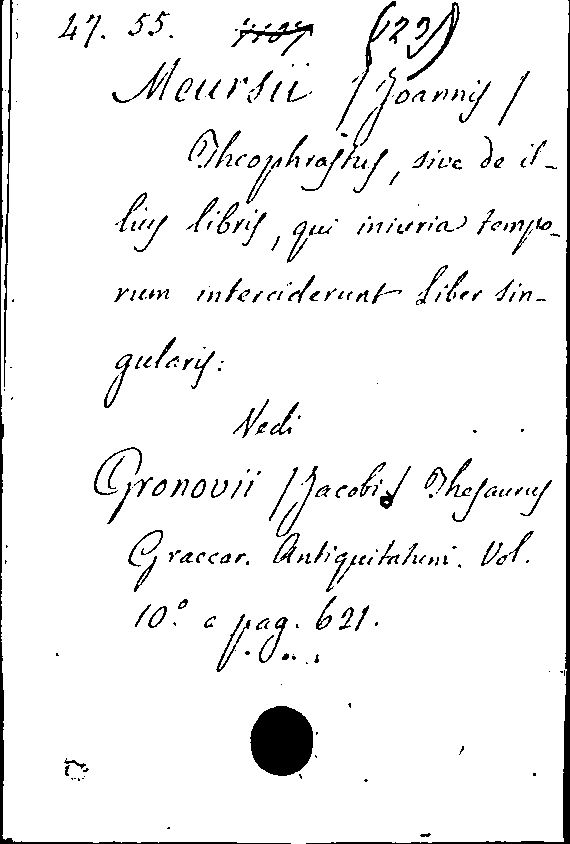 47. 55. 7107 (23)
Meursii / Joannis /
Theophrastus, sive de il-
lius libris, qui iniuria tempo-
rum interciderunt Liber sin-
gularis:
Vedi
Gronovii / Jacobi / Thesaurus
Graecar. Antiquitatum. Vol.
10.° a pag. 621.